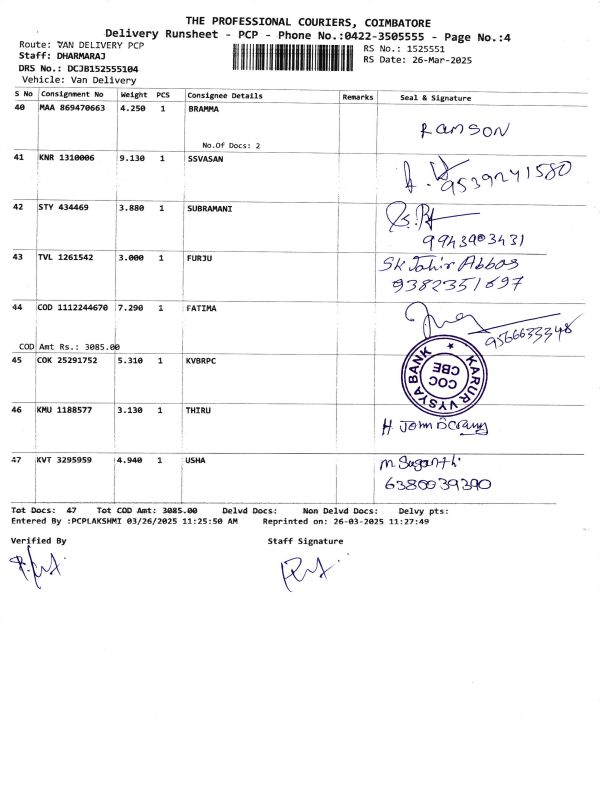 THE PROFESSIONAL COURIERS, COIMBATORE
Delivery Runsheet - PCP - Phone No.:0422-3505555 - Page No.:4
Route: VAN DELIVERY PCP
RS No.: 1525551
Staff: DHARMARAJ
RS Date: 26-Mar-2025
DRS No.: DCJB152555104
Vehicle: Van Delivery
S No Consignment No Weight PCS Consignee Details Remarks Seal & Signature
40 MAA 869470663 4.250 1 BRAMMA
RAMSON
No.Of Docs: 2
41 KNR 1310006 9.130 1 SSVASAN
9539241580
42 STY 434469 3.880 1 SUBRAMANI
9943903431
43 TVL 1261542 3.000 1 FURJU
SK Jahir Abbas
9382351697
44 COD 1112244670 7.290 1 FATIMA
9566633348
COD Amt Rs.: 3085.00
45 COK 25291752 5.310 1 KVBRPC
KARUR VYSYA BANK
COC
CBE
46 KMU 1188577 3.130 1 THIRU
H. John
47 KVT 3295959 4.940 1 USHA
M. Suganthi
6380039390
Tot Docs: 47 Tot COD Amt: 3085.00 Delvd Docs: Non Delvd Docs: Delvy pts:
Entered By :PCPLAKSHMI 03/26/2025 11:25:50 AM Reprinted on: 26-03-2025 11:27:49
Verified By Staff Signature